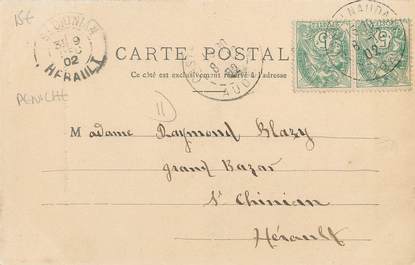 15€
ST CHINIAN
9
02
HERAULT
CARTE POSTALE
Ce côté est exclusivement réservé à l'adresse
8
02
AUDE
NAUDA
02
5
5
PENICHE
11
Madame Raymond Blazy
Grand Bazar
St Chinian
Hérault